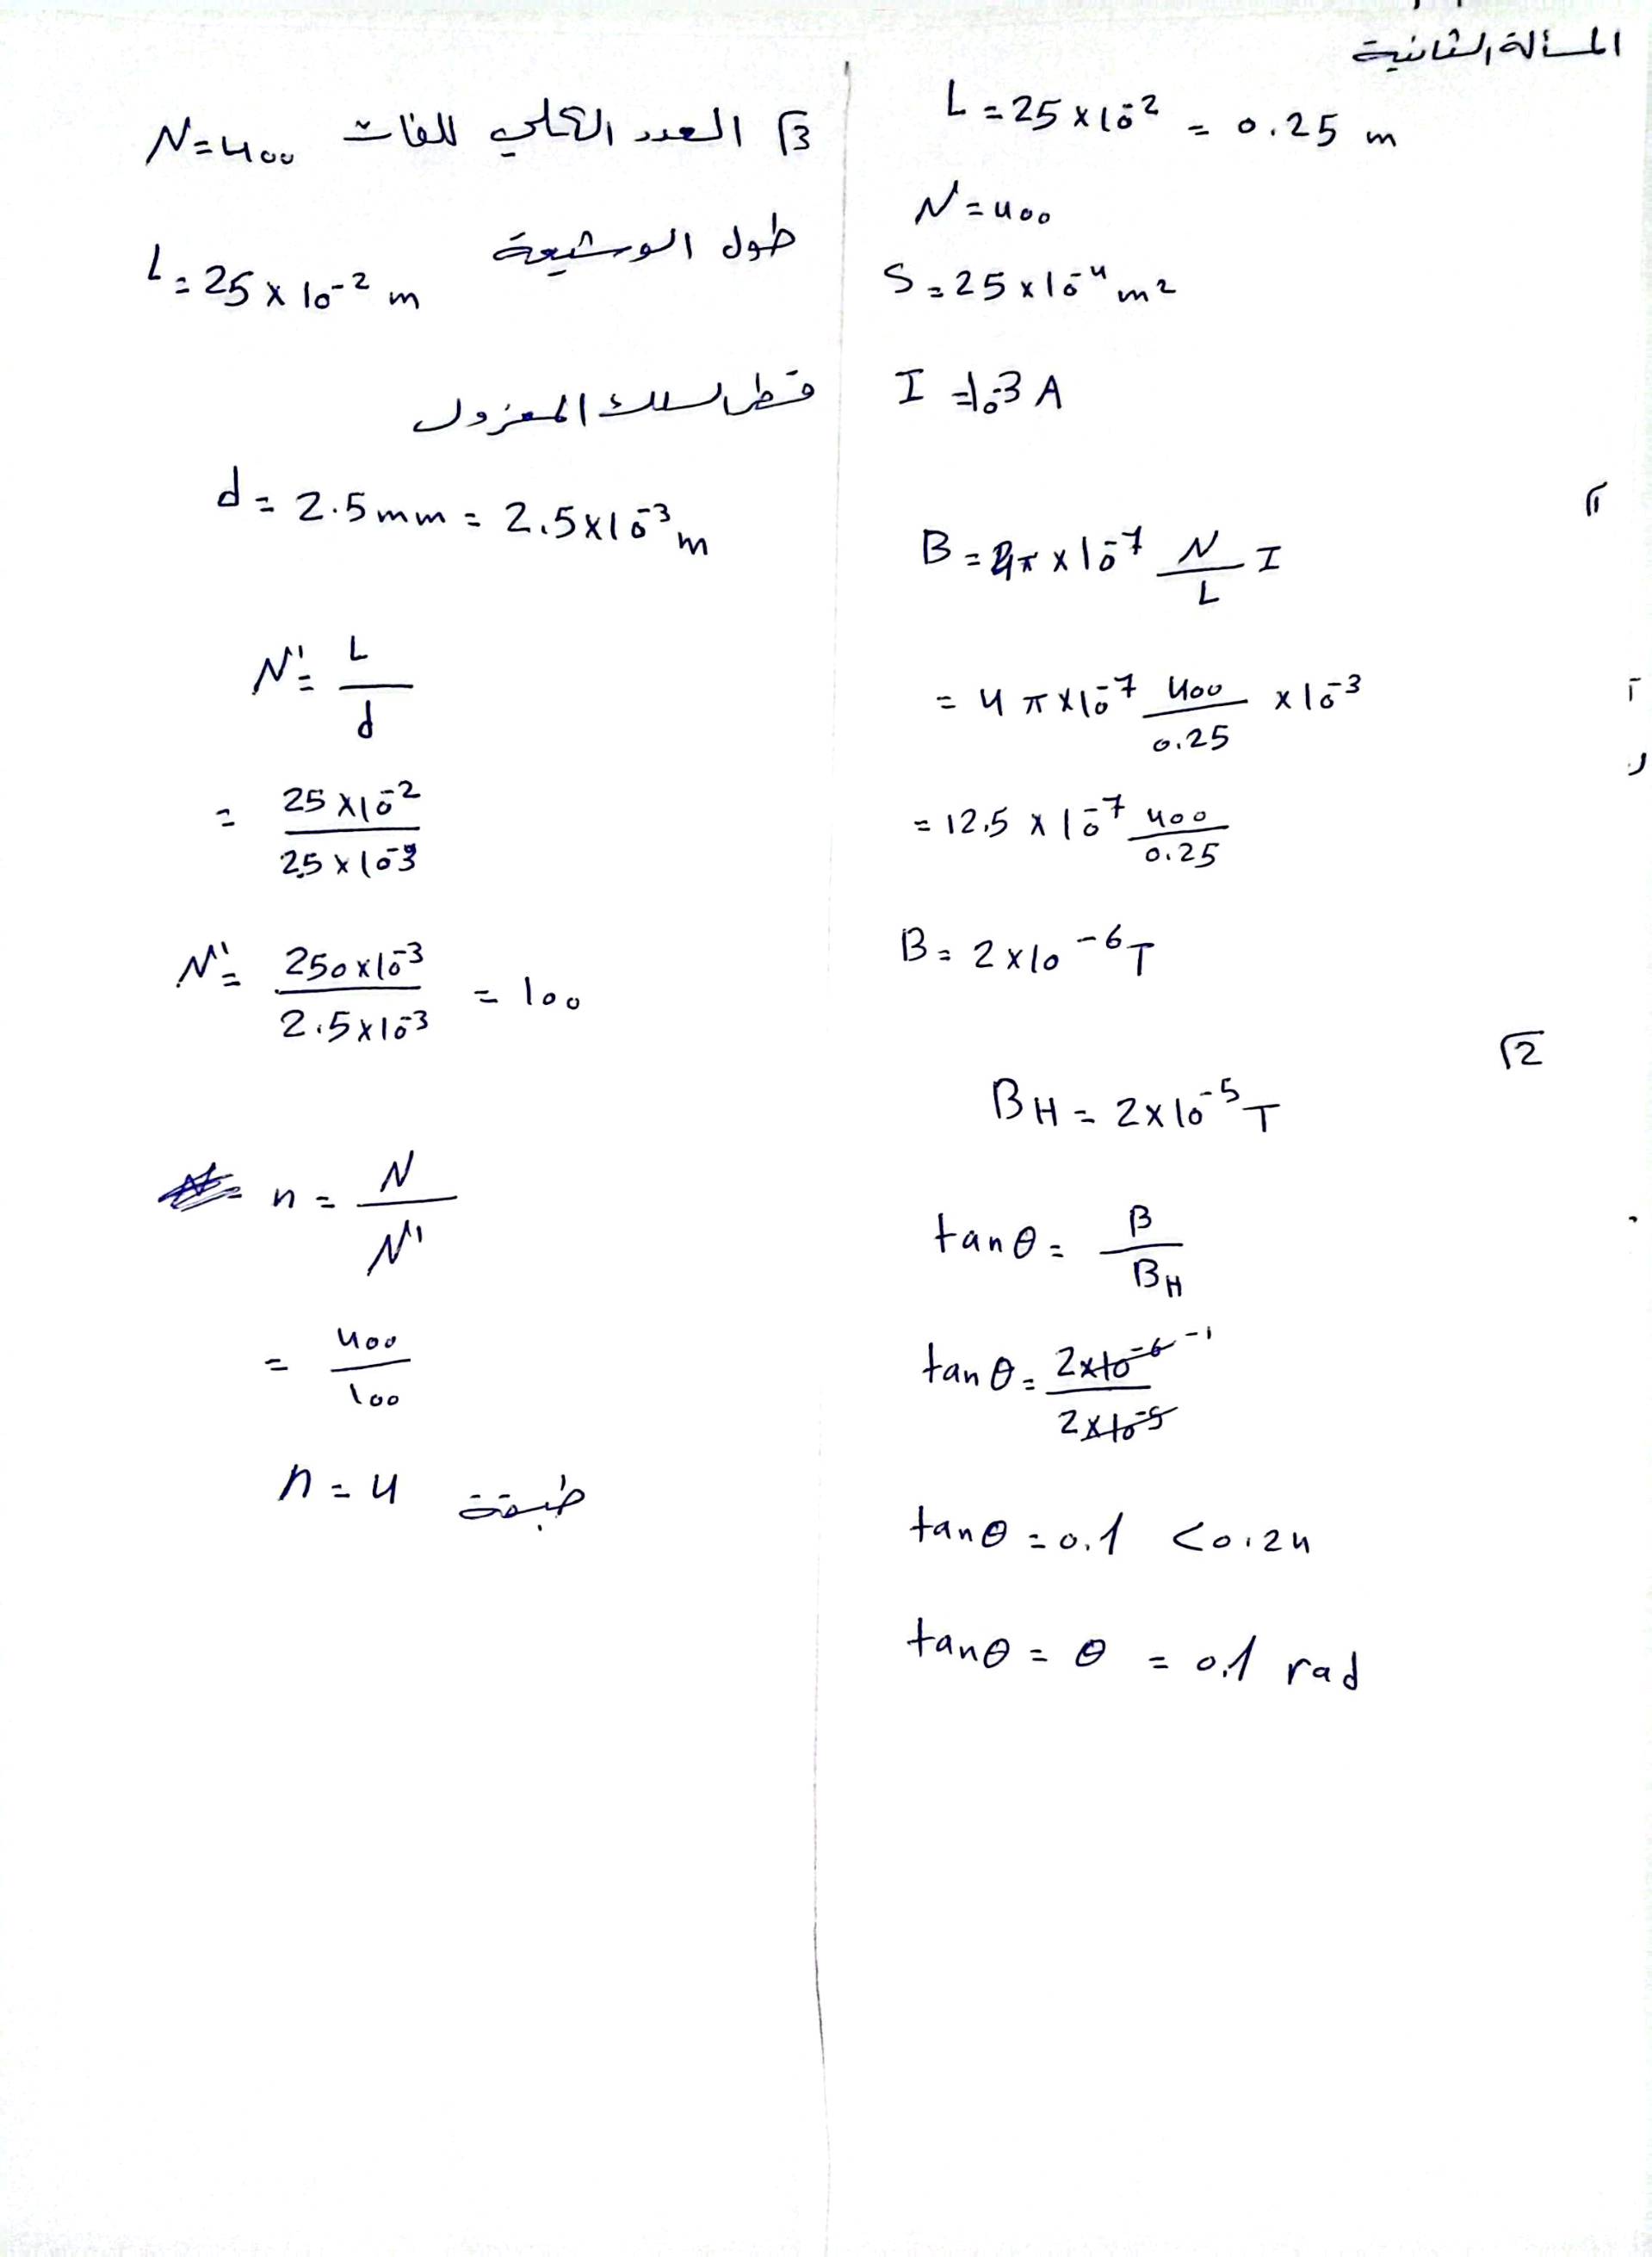 المسألة الثانية
L = 25 × 10⁻² = 0.25 m
N = 400
S = 25 × 10⁻⁴ m²
I = 10⁻³ A
1
B = 4π × 10⁻⁷ N/L I
= 4π × 10⁻⁷ 400/0.25 × 10⁻³
= 12.5 × 10⁻⁷ 400/0.25
B = 2 × 10⁻⁶ T
2
B_H = 2 × 10⁻⁵ T
tan θ = B/B_H
tan θ = 2×10⁻⁶/2×10⁻⁵ ⁻¹
tan θ = 0.1 < 0.24
tan θ = θ = 0.1 rad
3 العدد الكلي للفات N = 400
طول الوشيعة
L = 25 × 10⁻² m
قطر السلك المعزول
d = 2.5 mm = 2.5 × 10⁻³ m
N' = L/d
= 25 × 10⁻²/2.5 × 10⁻³
N' = 250 × 10⁻³/2.5 × 10⁻³ = 100
n = N/N'
= 400/100
n = 4 طبقة